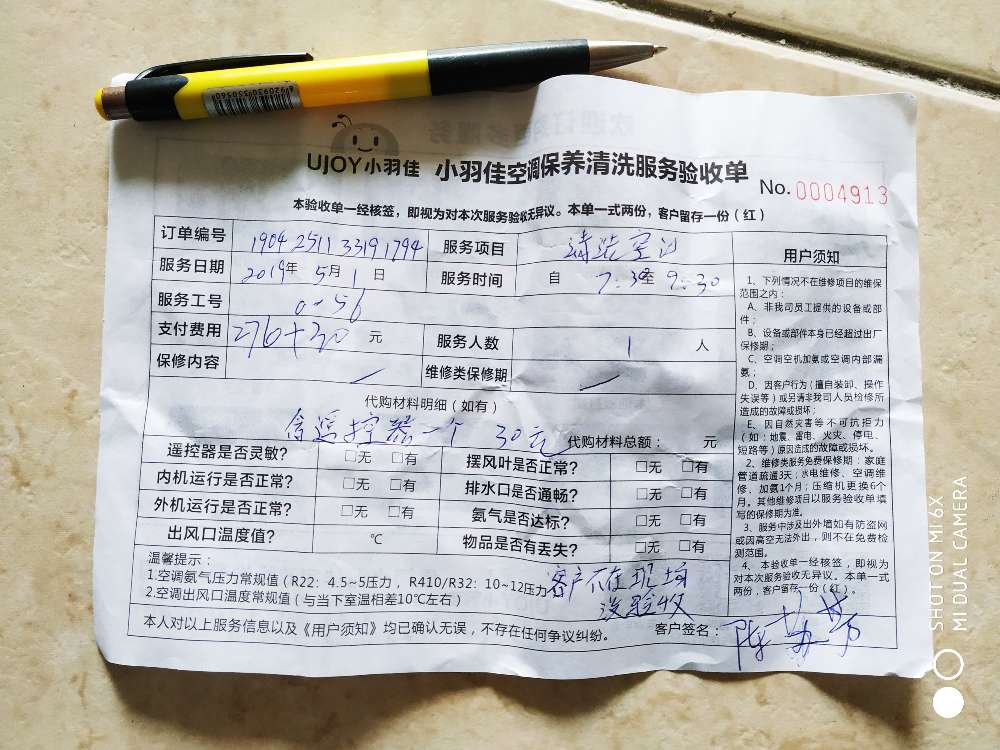 6920930553506
UJOY小羽佳 小羽佳空调保养清洗服务验收单
No.0004913
本验收单一经核签，即视为对本次服务验收无异议。本单一式两份，客户留存一份（红）
订单编号 1904 2511 3319 1794 服务项目
服务日期 2019年 5月 1 日 服务时间 自 7:30至 9:30
服务工号 0-56
支付费用 276+30 元 服务人数 1 人
保修内容 / 维修类保修期 /
代购材料明细（如有）
含遥控器一个 30元 代购材料总额： 元
遥控器是否灵敏？ □无 □有 摆风叶是否正常？ □无 □有
内机运行是否正常？ □无 □有 排水口是否通畅？ □无 □有
外机运行是否正常？ □无 □有 氨气是否达标？ □无 □有
出风口温度值？ ℃ 物品是否有丢失？ □无 □有
温馨提示：
1.空调氨气压力常规值（R22：4.5~5压力，R410/R32：10~12压力
2.空调出风口温度常规值（与当下室温相差10℃左右）
客户不在现场
没验收
本人对以上服务信息以及《用户须知》均已确认无误，不存在任何争议纠纷。 客户签名：
用户须知
1、下列情况不在维修项目的维保
范围之内：
A、非我司员工提供的设备或部
件；
B、设备或部件本身已经超过出厂
保修期；
C、空调空机加氨或空调内部漏
氨；
D、因客户行为（擅自装卸、操作
失误等）或另请非我司人员检修所
造成的故障或损坏；
E、因自然灾害等不可抗拒力
（如：地震、雷电、火灾、停电、
短路等）原因造成的故障或损坏。
2、维修类服务免费保修期：家庭
管道疏通3天；水电维修、空调维
修、加氨1个月；压缩机更换6个
月。其他维修项目以服务验收单填
写的保修期为准。
3、服务中涉及出外墙如有防盗网
或因高空无法外出，则不在免费检
测范围。
4、本验收单一经核签，即视为
对本次服务验收无异议。本单一式
两份，客户留存一份（红）。
SHOT ON MI 6X
MI DUAL CAMERA